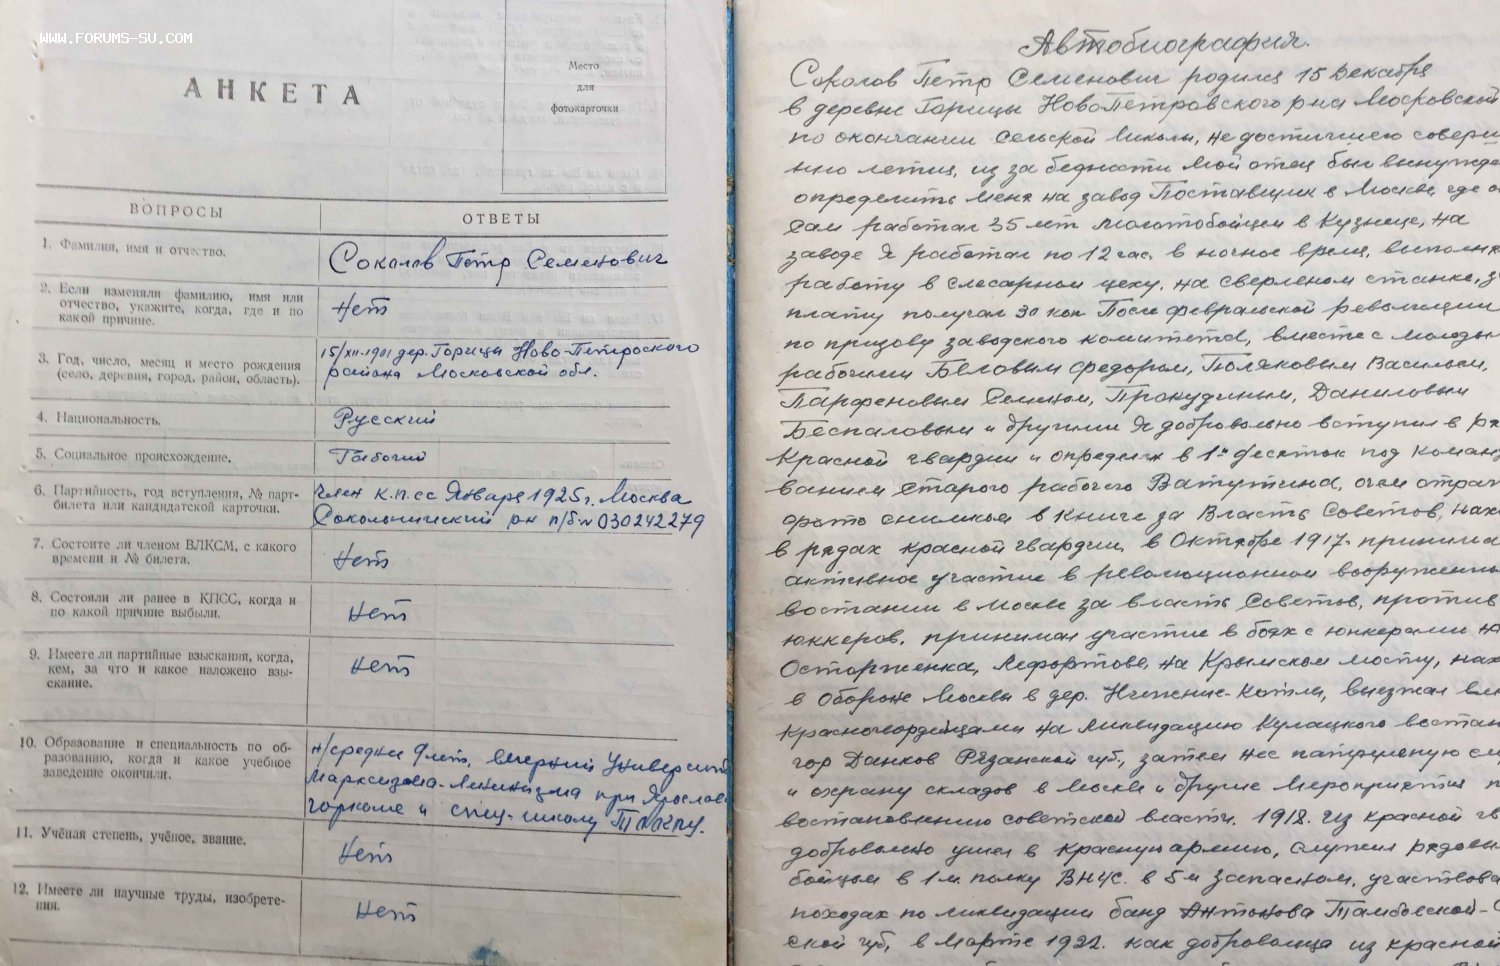 WWW.FORUMS-SU.COM
АНКЕТА
Место
для
фотокарточки
ВОПРОСЫ
ОТВЕТЫ
1. Фамилия, имя и отчество.
Соколов Петр Семенович
2. Если изменяли фамилию, имя или
отчество, укажите, когда, где и по
какой причине.
Нет
3. Год, число, месяц и место рождения
(село, деревня, город, район, область).
15/XII-1901 дер. Горицы Ново-Петроского
района Московской обл.
4. Национальность.
Русский
5. Социальное происхождение.
Рабочий
6. Партийность, год вступления, № парт-
билета или кандидатской карточки.
член к.п.сс Январе 1925 г. Москва
Сокольнический рн п/б № 030242279
7. Состоите ли членом ВЛКСМ, с какого
времени и № билета.
Нет
8. Состояли ли ранее в КПСС, когда и
по какой причине выбыли.
Нет
9. Имеете ли партийные взыскания, когда,
кем, за что и какое наложено взы-
скание.
Нет
10. Образование и специальность по об-
разованию, когда и какое учебное
заведение окончили.
н/средни вечерний Университ
Марксизма-Ленинизма при Ярослав
горкоме и спец-школу
11. Учёная степень, учёное, звание.
Нет
12. Имеете ли научные труды, изобрете-
ния.
Нет
Автобиография.
Соколов Петр Семенович родился 15 Декабря
в деревне Горицы НовоПетровского рна Московской
по окончании Сельской школы, не достигшего соверш
нно летия, из за бедности мой отец был вынужде
определить меня на завод Поставщик в Москве, где он
сам работал 35 лет молотобойцем в Кузнице, на
заводе я работал по 12 час. в ночное время, выполня
работу в слесарном цеху, на сверленом станке, з
плату получал 30 коп. После февральской революции
по призову заводского комитета, вместе с молоды
рабочими Беловым Федором, Поляковым Василием,
Парфеновым Семеном, Прокудиным, Даниловым
Беспаловым и другими я добровольно вступил в ря
Красной гвардии и определен в 1й десяток под коман
ванием старого рабочего Ватутина, о чем отра
фото снимком в книге за Власть Советов, нах
в рядах красной гвардии, в Октябре 1917 принима
активное участие в революционном вооруженно
востании в Москве за власть Советов, против
юнкеров, принимал участие в боях с юнкерами н
Осторженка, Лефортове, на Крымском мосту, нах
в Обороне Москвы в дер. Нижние-Котлы, выезжал вм
красногвордейцами на ликвидацию Кулацкого востан
гор Данков Рязанской губ, затем нес патрульную сл
и охрану складов в Москве и другие мероприятия п
востановлению советской власти. 1918. из красной гв
добровольно ушел в красную армию, служил рядовы
бойцом в 1м. полку ВНУС. в 5м запасном, участвова
походах по ликвидации банд Антонова Тамбовской-
ской губ, в Марте 1922. как добровольца из красной